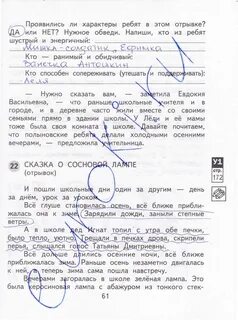 Проявились ли характеры ребят в этом отрывке?
ДА или НЕТ? Нужное обведи. Напиши, кто из ребят
шустрый и энергичный:
Мишка-солдатик, Ефимка
Кто — ранимый и обидчивый:
Васютка Антошкин
Кто способен сопереживать (утешать и поддерживать):
Леля
— Нужно сказать вам, — заметила Евдокия
Васильевна, — что раньше школьные учителя и в
города, и в деревне часто жили вместе со своими
семьями прямо в здании школы. У Лёди и её мамы
тоже была своя комната в школе. Давайте почитаем,
что полыновские ребята делали холодными осенними
вечерами, — предложила учительница.
22 СКАЗКА О СОСНОВОЙ ЛАМПЕ
(отрывок)
У1
стр.
172
И пошли школьные дни один за другим — день
за днём, урок за уроком.
Всё глуше становилась осень, всё ближе приближа-
лась она к зиме. Зарядили дожди, заныли степные
ветры.
А в школе дед Игнат топил с утра обе печки,
было тепло, уютно. Трещали в печках дрова, скрипели
перья, слышался голос Татьяны Дмитриевны.
Всё дольше длились осенние ночи, всё ближе
приближалась зима. Раньше осень незаметно двигалась
к ней, а теперь зима сама пошла навстречу.
Вечерами загоралась в школе зелёная лампа. Это
была керосиновая лампа с абажуром из тонкого стек-
61